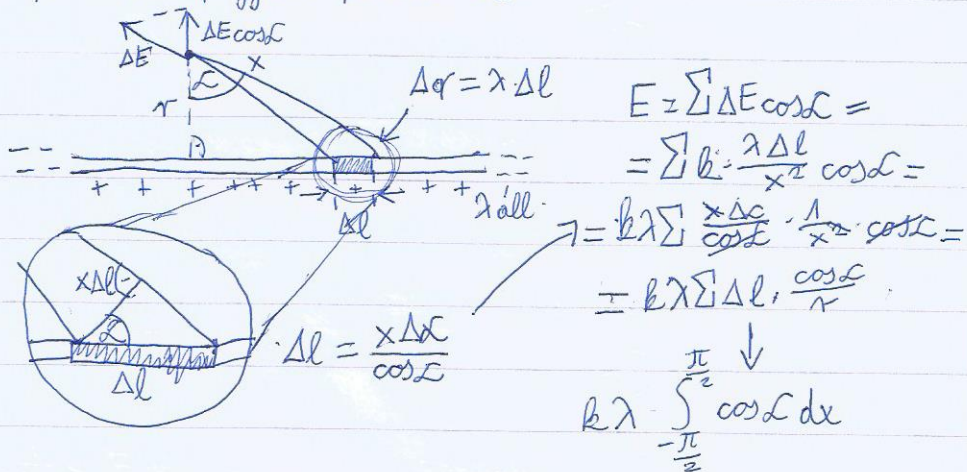 ΔE cosα
ΔE
α
x
r
Δq = λ·Δl
+ + + + + + + + +
λ áll.
Δl
xΔα
α
Δl
Δl = xΔα / cosα
E = ∑ ΔE cosα =
= ∑ k · λ Δl / x² cosα =
= kλ ∑ xΔα / cosα · 1 / x² · cosα =
= kλ ∑ Δl · cosα / r
↓
kλ ∫_{-π/2}^{π/2} cosα dx